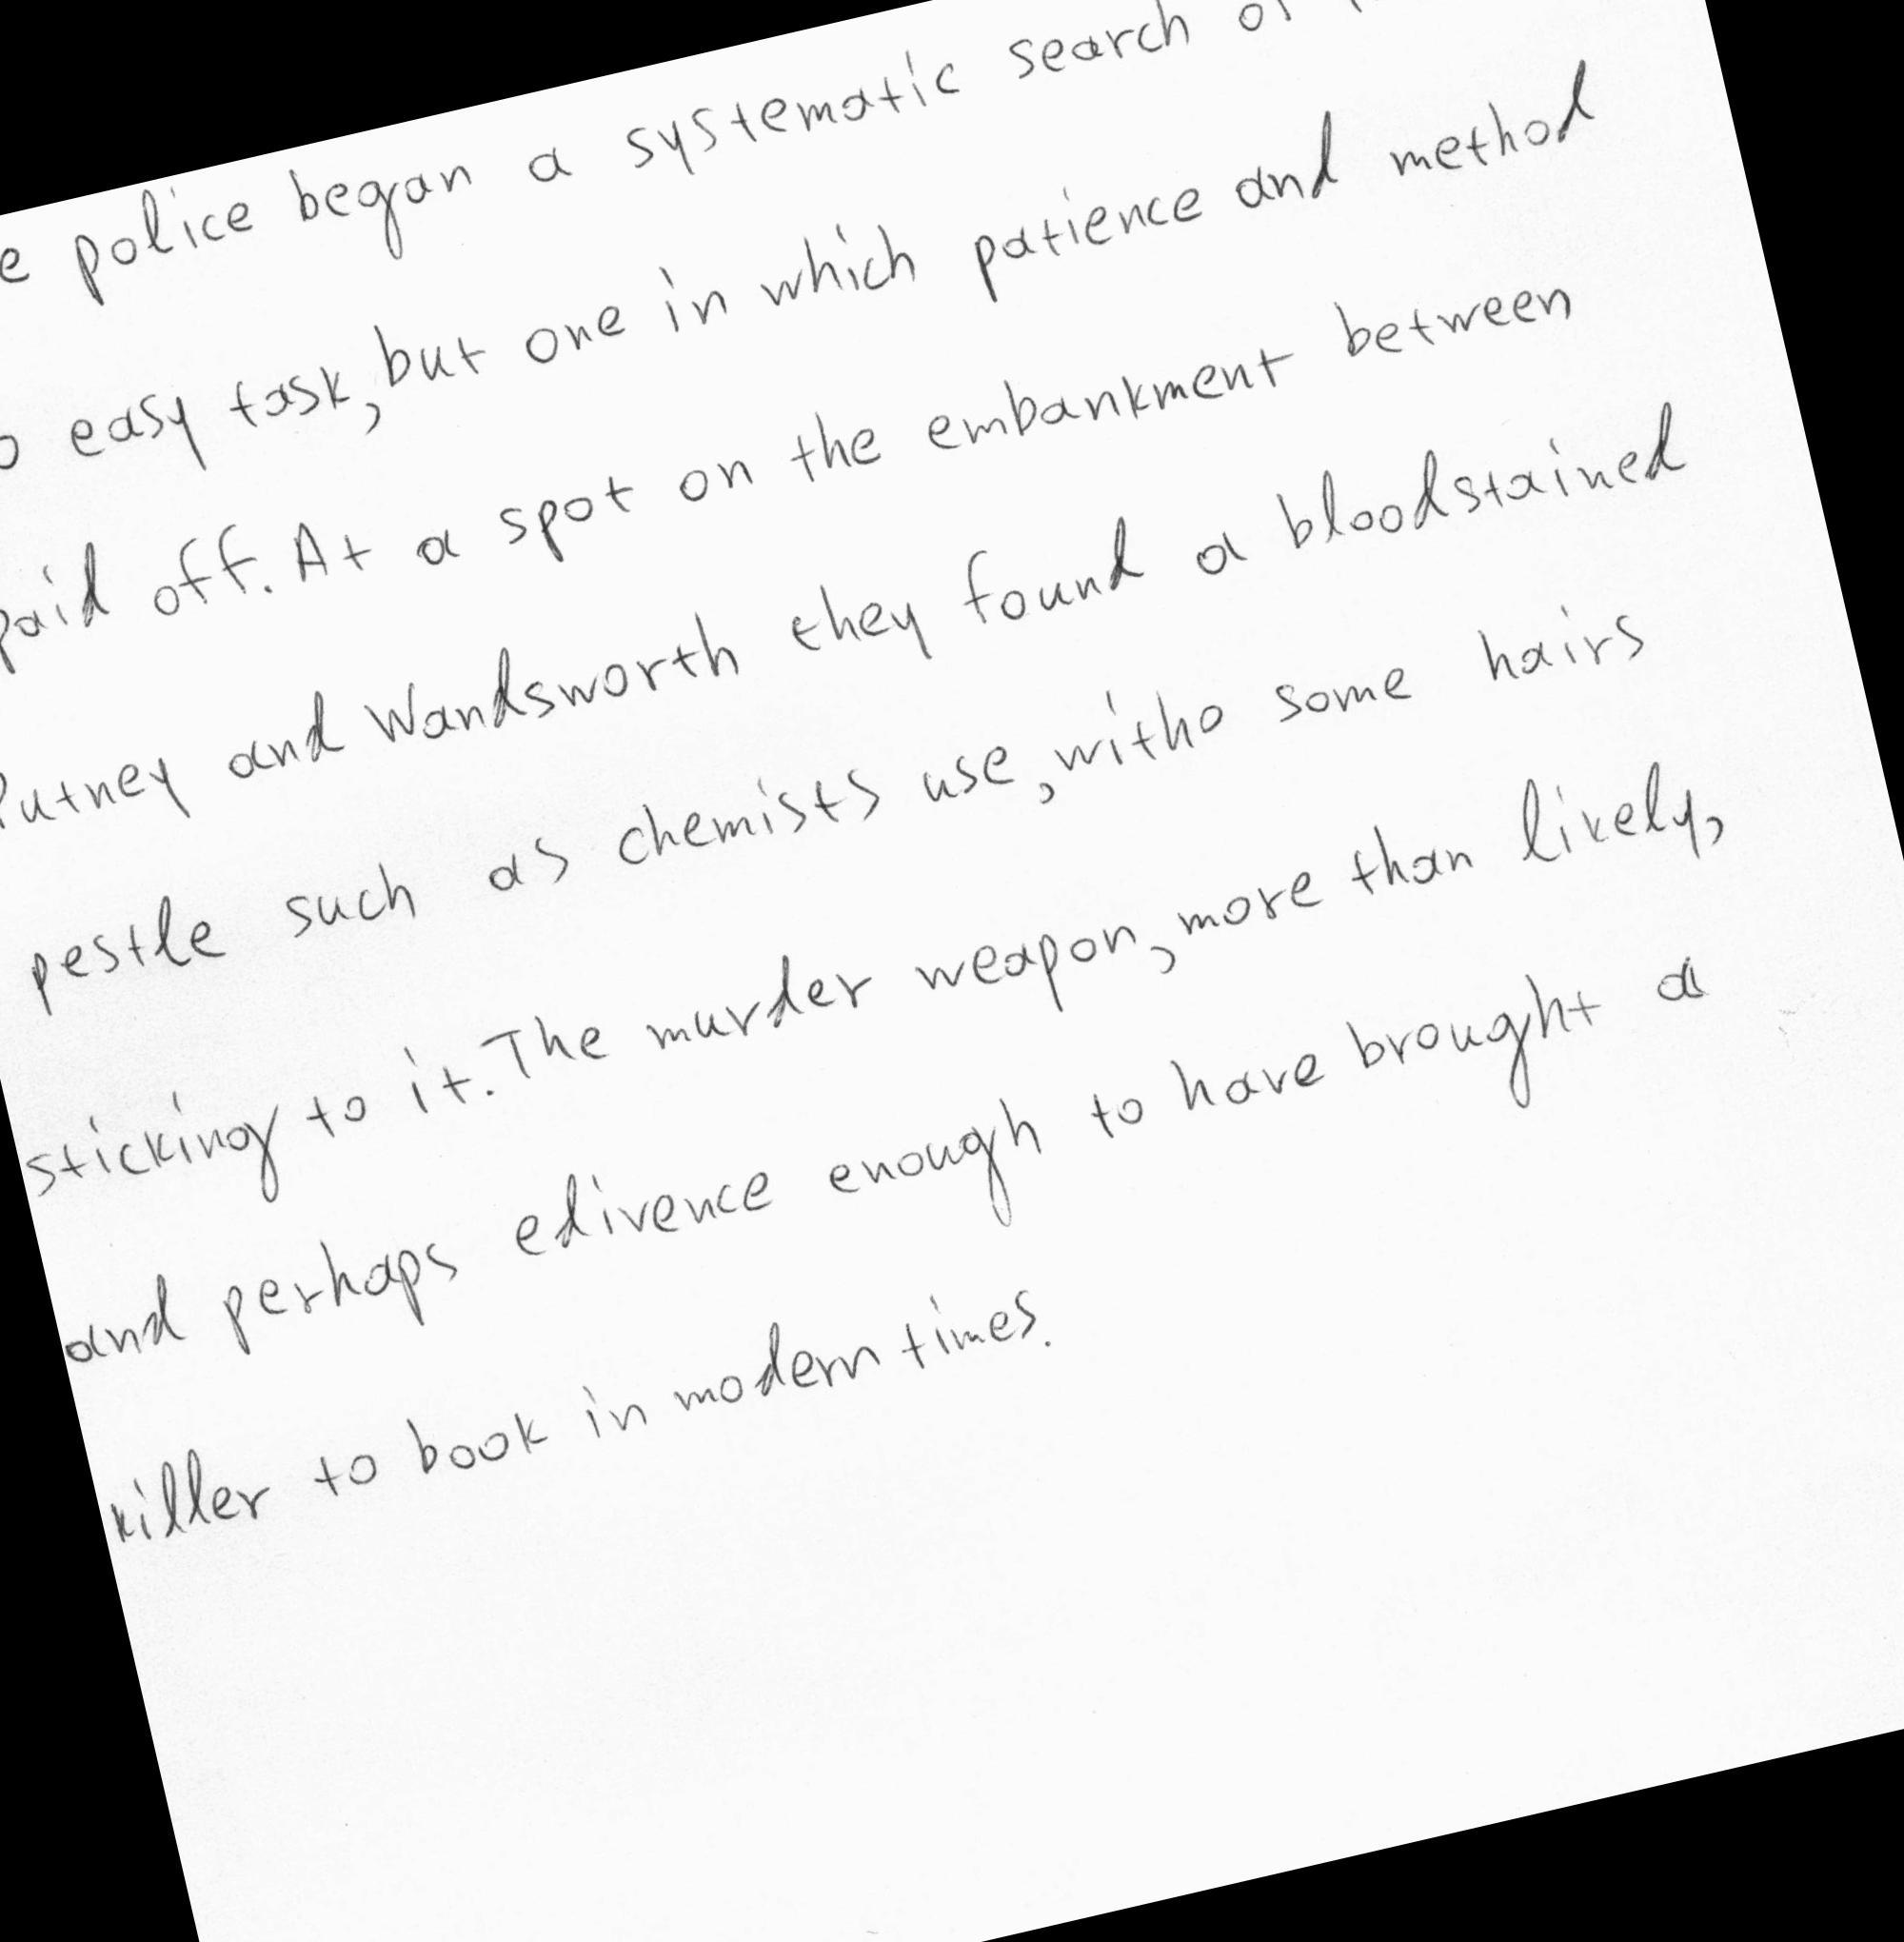 police began a systematic search
easy task, but one in which patience and method
paid off. At a spot on the embankment between
Putney and Wandsworth they found a bloodstained
pestle such as chemists use, witho some hairs
sticking to it. The murder weapon, more than lively,
and perhaps edivence enough to have brought a
killer to book in modern times.